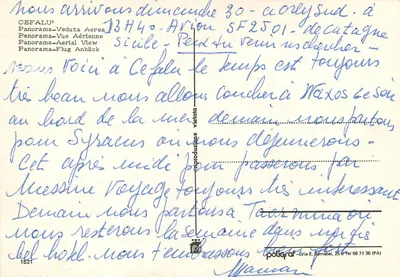 nous arrivons dimanche 30 - a orly Sud - à
13h40 - Avion SF2501 - de Catagne
Sicile - Peux tu venir nous chercher -
CEFALU'
Panorama-Veduta Aerea
Panorama-Vue Aérienne
Panorama-Aerial View
Panorama-Flug Anblick
nous voici à Cefalu le temps est toujours
très beau nous allons coucher à Naxos ce soir
au bord de la mer demain nous partons
pour Syracus où nous déjeunerons -
Cet après midi nous passerons par
Messine Voyage toujours très interessant
Demain nous partons a Taormina ou
nous resterons la semaine dans un très
bel hotel - nous t'embrassons
Maman
1521
riproduzione vietata
poligraf - Via E. Bernabei, 25